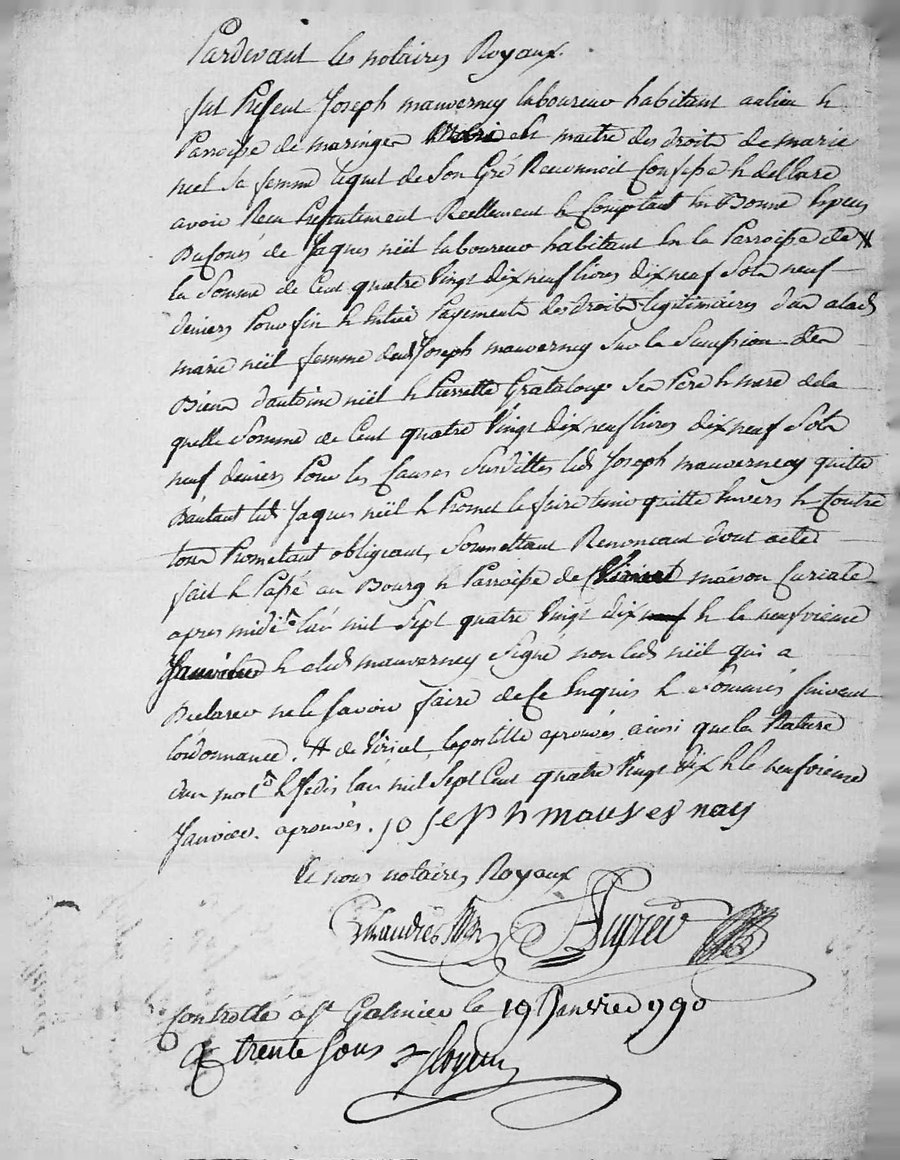 Pardevant les notaires Royaux.
fut Present Joseph mauverney laboureur habitant au lieu &
Parroisse de maringes maitre des droits de marie
neël sa femme lequel de son Gré Reconnoit Confesse & dellare
avoir Receu Presentement Reellement & Comptant En Bonne Especes
Ducours de Jaques neël laboureur habitant En la Parroisse de #
la Somme de Cent quatre Vingt dix neuf livres dix neuf Sols neuf
deniers Pour fin & Entier Payements des droits legitimaires dus a lad
marie neël femme dud Joseph mauverney Sur la Sucession des
Biens d'antoine neël & Pierrette Grataloup Ses Pere & mere de la
quelle Somme de Cent quatre Vingt dix neuf livres dix neuf Sols
neuf deniers Pour les Causes Susdittes led Joseph mauverney quitte
D'autant led Jaques neël & Promet le faire tenir quitte Envers & Contre
tous Prometant obligeant, Soumettant Renoncant dont acte
fait & Passé au Bourg & Parroisse de Viricel maison Curiale
apres midi l'an mil Sept quatre Vingt dix neuf & le neufvieme
Janvier & a led mauverney Signé non led neël qui a
Declarer ne le Savoir faire de Ce Enquis & Sommés Suivant
lordonnance. # de Viricel, lapostille aprouvés ainsi que la Rature
dun mot & Jedis lan mil Sept Cent quatre Vingt dix & le neufvieme
Janvier. aprouvés. joseph mauvernay
Et nous notaires Royaux
Dupré
Controllé a St Galmier le 19 Janvier 990
R trente Sous